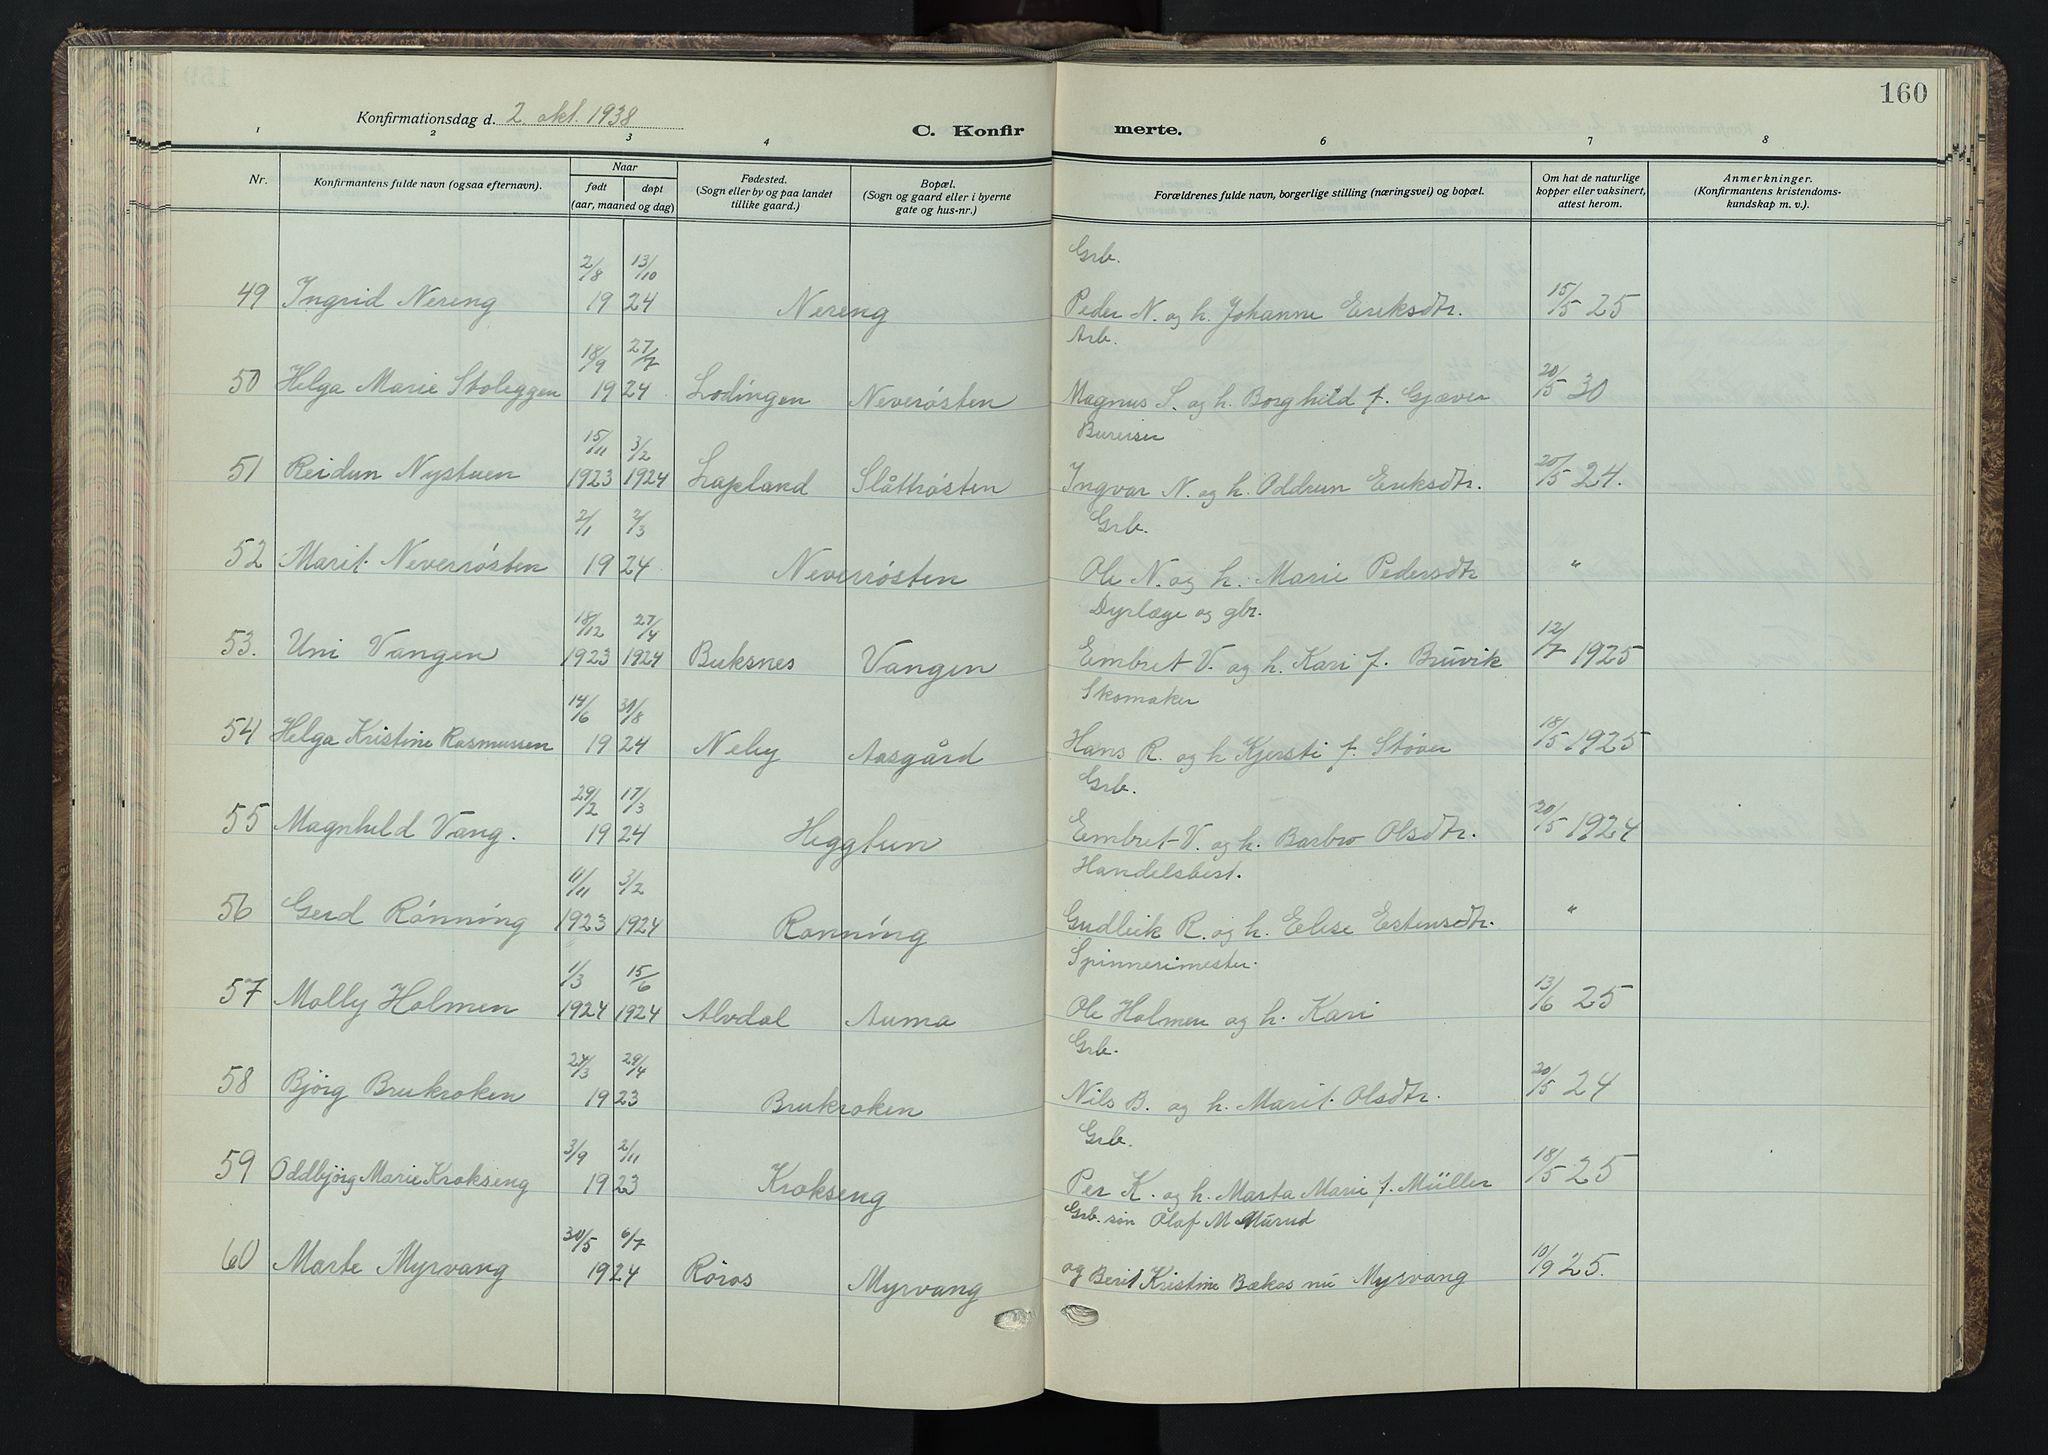 160
Konfirmationsdag d. 2. okt. 1938
C. Konfirmerte.
1 2 3 4 6 7 8
Nr. Konfirmantens fulde navn (ogsaa efternavn). Naar født døpt (aar, maaned og dag) Fødested. (Sogn eller by og paa landet tillike gaard.) Bopæl. (Sogn og gaard eller i byerne gate og hus-nr.) Forældrenes fulde navn, borgerlige stilling (næringsvei) og bopæl. Om hat de naturlige kopper eller vaksinert, attest herom. Anmerkninger. (Konfirmantens kristendomskundskap m. v.).
2/8 13/10 Grb.
49 Ingrid Nereng 1924 Nereng Peder N. og h. Johanne Eriksdtr. 15/5 25
18/9 27/7 Arb.
50 Helga Marie Stoleggen 1924 Lødingen Neverøsten Magnus S. og h. Borghild f. Gjæver 20/5 30
15/11 3/2 Bureiser
51 Reidun Nystuen 1923 1924 Lapland Slåttrøsten Ingvar N. og h. Oddrun Eriksdtr. 20/5 24.
2/1 2/3 Grb.
52 Marit Neverrøsten 1924 Neverrøsten Ole N. og h. Marie Pedersdtr "
18/12 27/4 Dyrlæge og gbr.
53. Uni Vangen 1923 1924 Buksnes Vangen Embret V. og h. Kari f. Bruvik 12/7 1925
14/6 31/8 Skomaker
54 Helga Kristine Rasmussen 1924 Neby Aasgård Hans R. og h Kjersti f. Støver 18/5 1925
29/2 17/3 Grb.
55 Magnhild Vang. 1924 Heggtun Embret V. og h. Barbro Olsdtr. 20/5 1924
11/11 3/2 Handelsbest.
56 Gerd Rønning 1923 1924 Rønning Gudleik R. og h. Elise Estensdtr. "
1/3 15/6 Spinnerimester.
57 Molly Holmen 1924 1924 Alvdal Auma Ole Holmen og h. Kari 13/6 25
24/3 29/4 Grb.
58 Bjørg Brukroken 1923 Brukroken Nils B. og h. Marit Olsdtr. 20/5 24
3/9 2/11 Grb.
59 Oddbjørg Marie Krokseng 1923 Krokseng Per K. og h. Marta Marie f. Müller 18/5 25
30/5 6/7 Grb. søn Olaf M. Murud
60 Marte Myrvang 1924 Røros Myrvang og Berit Kristine Bækos nu Myrvang 10/9 25.